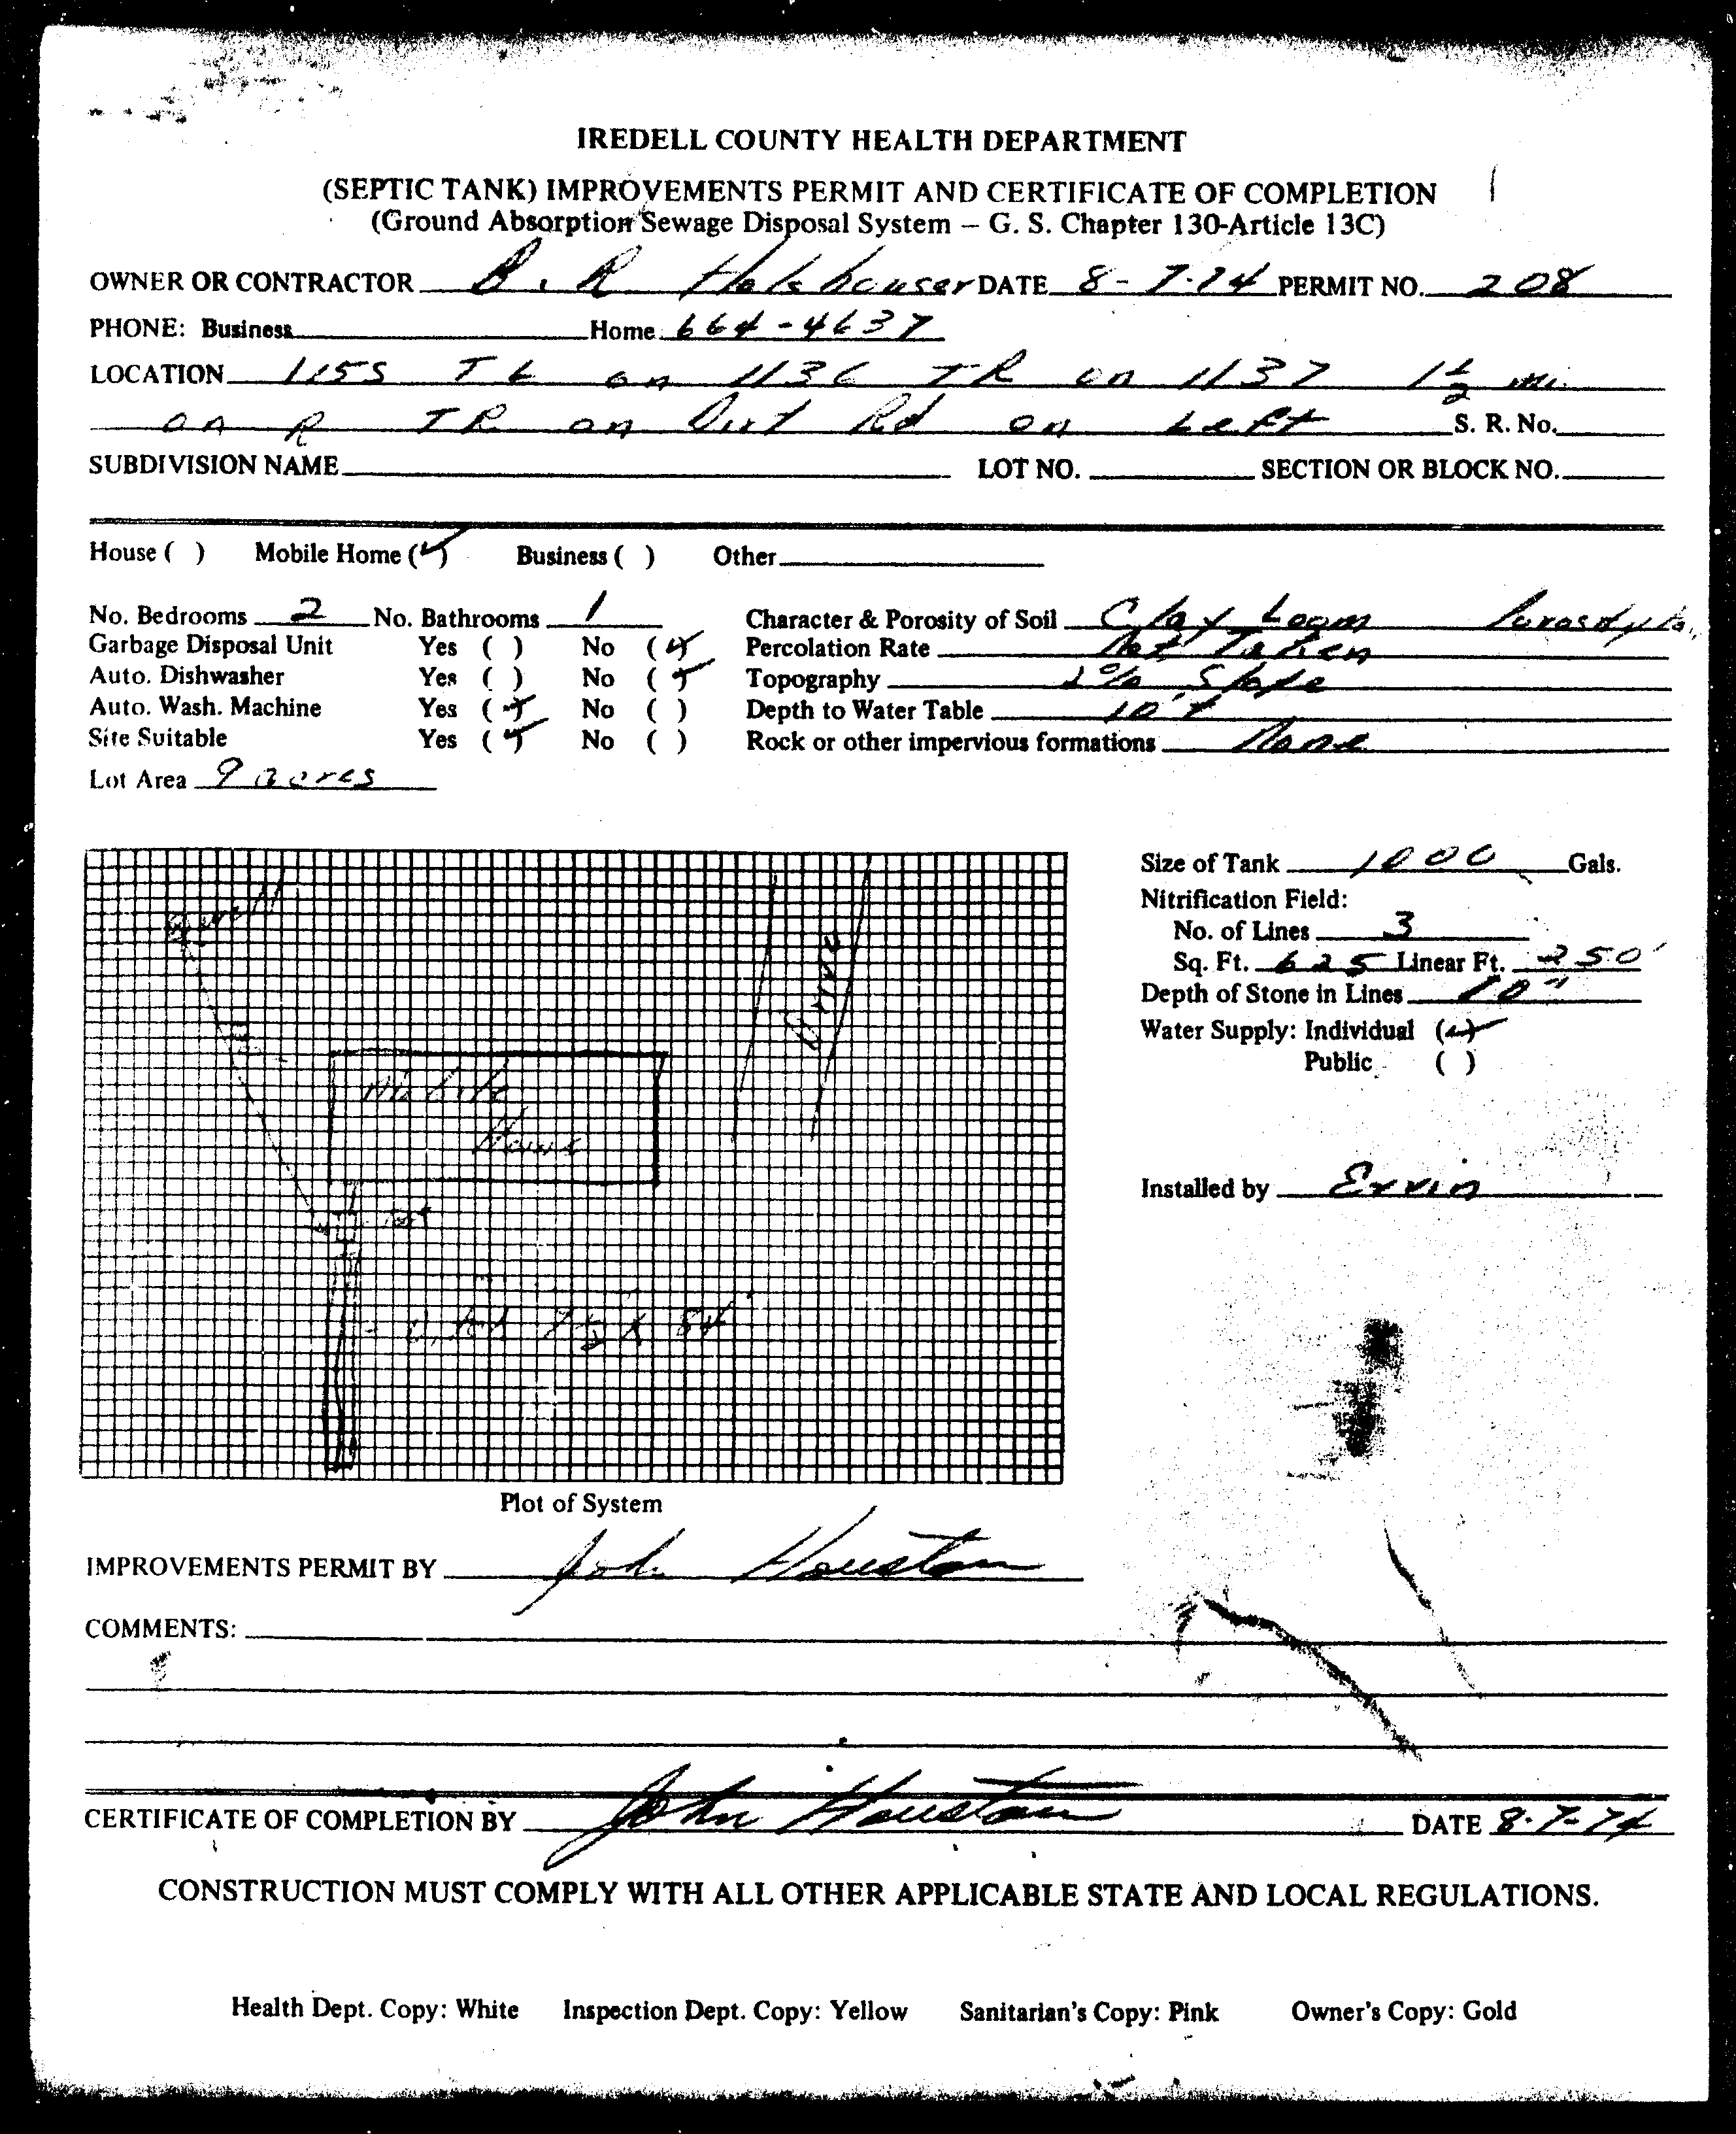 IREDELL COUNTY HEALTH DEPARTMENT
(SEPTIC TANK) IMPROVEMENTS PERMIT AND CERTIFICATE OF COMPLETION
(Ground Absorption Sewage Disposal System — G. S. Chapter 130-Article 13C)
OWNER OR CONTRACTOR B. R Holshouser DATE 8-7-74 PERMIT NO. 208
PHONE: Business Home 664-4637
LOCATION 1155 TL on 1136 TR on 1137 1 1/2 mi.
on R TR on Dirt Rd on Left S. R. No.
SUBDIVISION NAME LOT NO. SECTION OR BLOCK NO.
House ( ) Mobile Home (✓) Business ( ) Other
No. Bedrooms 2 No. Bathrooms 1 Character & Porosity of Soil Clay Loom
Garbage Disposal Unit Yes ( ) No (✓) Percolation Rate Not Taken
Auto. Dishwasher Yes ( ) No (✓) Topography 2% Slope
Auto. Wash. Machine Yes (✓) No ( ) Depth to Water Table 10'+
Site Suitable Yes (✓) No ( ) Rock or other impervious formations None
Lot Area 9 acres
Size of Tank 1000 Gals.
Nitrification Field:
No. of Lines 3
Sq. Ft. 625 Linear Ft. 250'
Depth of Stone in Lines 10"
Water Supply: Individual (✓)
Public ( )
Installed by Ervin
well
Drive
Mobile
Home
Plot of System
IMPROVEMENTS PERMIT BY John Houston
COMMENTS:
CERTIFICATE OF COMPLETION BY John Houston DATE 8-7-74
CONSTRUCTION MUST COMPLY WITH ALL OTHER APPLICABLE STATE AND LOCAL REGULATIONS.
Health Dept. Copy: White Inspection Dept. Copy: Yellow Sanitarian's Copy: Pink Owner's Copy: Gold